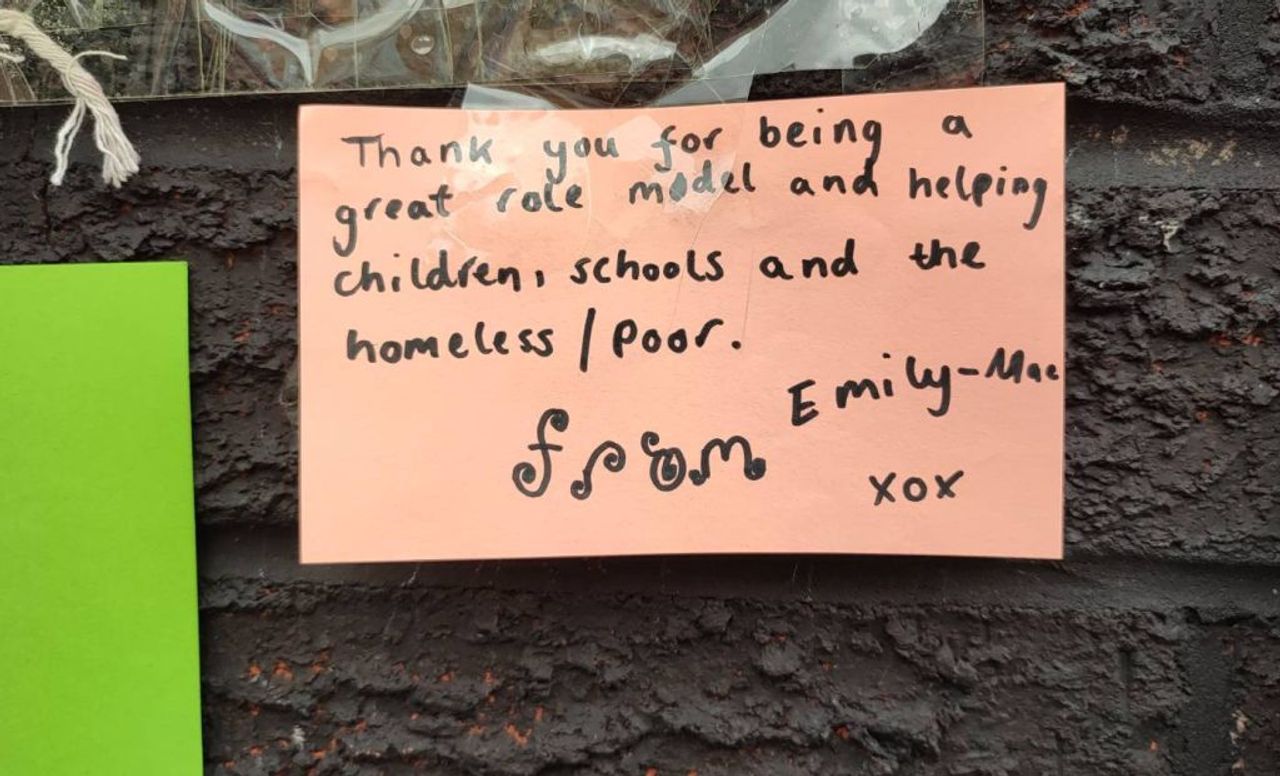 Thank you for being a
great role model and helping
children, schools and the
homeless / poor.
from Emily-Mae
xox